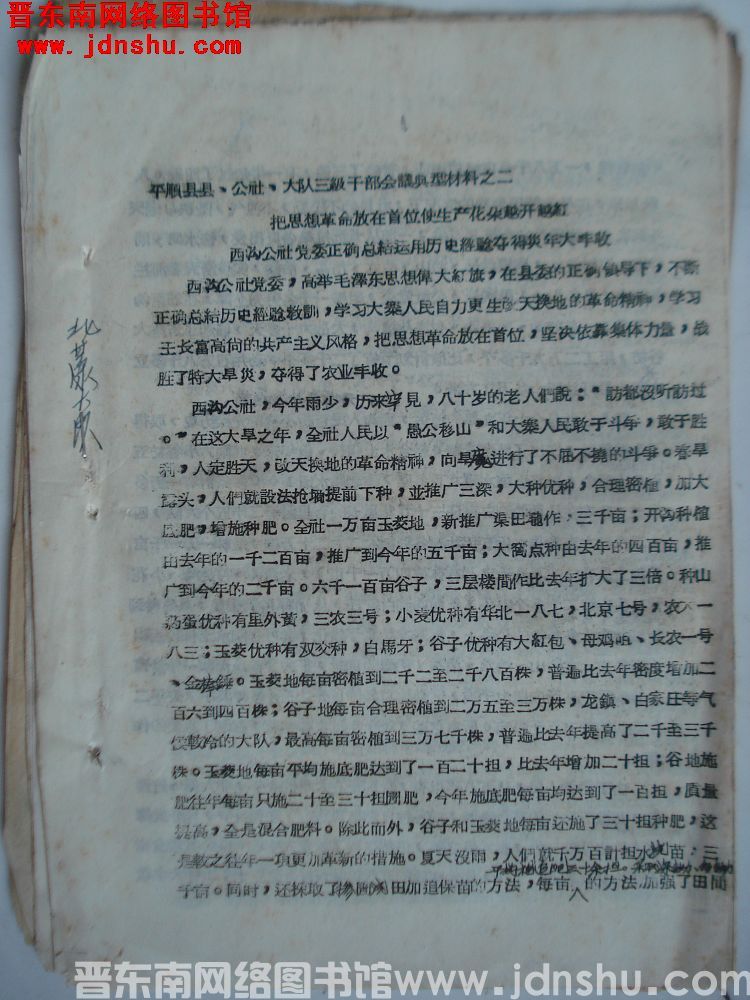 晋东南网络图书馆
www.jdnshu.com
平順县县、公社、大队三級干部会議典型材料之二
把思想革命放在首位使生产花朵越开越紅
西沟公社党委正确总結运用历史經驗夺得災年大丰收
西沟公社党委，高举毛澤东思想偉大紅旗，在县委的正确領导下，不断
正确总結历史經驗教訓，学习大寨人民自力更生改天換地的革命精神，学习
王长富高尚的共产主义风格，把思想革命放在首位，坚决依靠集体力量，战
胜了特大旱災，夺得了农业丰收。
西沟公社，今年雨少，历来罕見，八十岁的老人們說：“訪都沒听訪过
。”在这大旱之年，全社人民以“愚公移山”和大寨人民敢于斗爭，敢于胜
利，人定胜天，改天換地的革命精神，向旱魔进行了不屈不撓的斗爭。春旱
露头，人們就設法抢墒提前下种，並推广三深，大种优种，合理密植，加大
底肥，增施种肥。全社一万亩玉茭地，新推广渠田壠作，三千亩；开沟种植
由去年的一千二百亩，推广到今年的五千亩；大窩点种由去年的四百亩，推
广到今年的二千亩。六千一百亩谷子，三层楼間作比去年扩大了三倍。种山
葯蛋优种有里外黄，三农三号；小麦优种有华北一八七，北京七号，农大一
八三；玉茭优种有双交种，白馬牙；谷子优种有大紅包、母鸡咀、长农一号
、金棒錘。玉茭地每亩密植到二千二至二千八百株，普遍比去年密度增加二
百六到四百株；谷子地每亩合理密植到二万五至三万株，龙鎮、白家庄等气
候較冷的大队，最高每亩密植到三万七千株，普遍比去年提高了二千至三千
株。玉茭地每亩平均施底肥达到了一百二十担，比去年增加二十担；谷地施
肥往年每亩只施二十至三十担圈肥，今年施底肥每亩均达到了一百担，質量
提高，全是混合肥料。除此而外，谷子和玉茭地每亩还施了三十担种肥，这
是較之往年一項更加革新的措施。夏天沒雨，人們就千方百計担水澆苗，三
千亩。同时，还採取了田加追保苗的方法，每亩的方法加强了田間
晋东南网络图书馆www.jdnshu.com